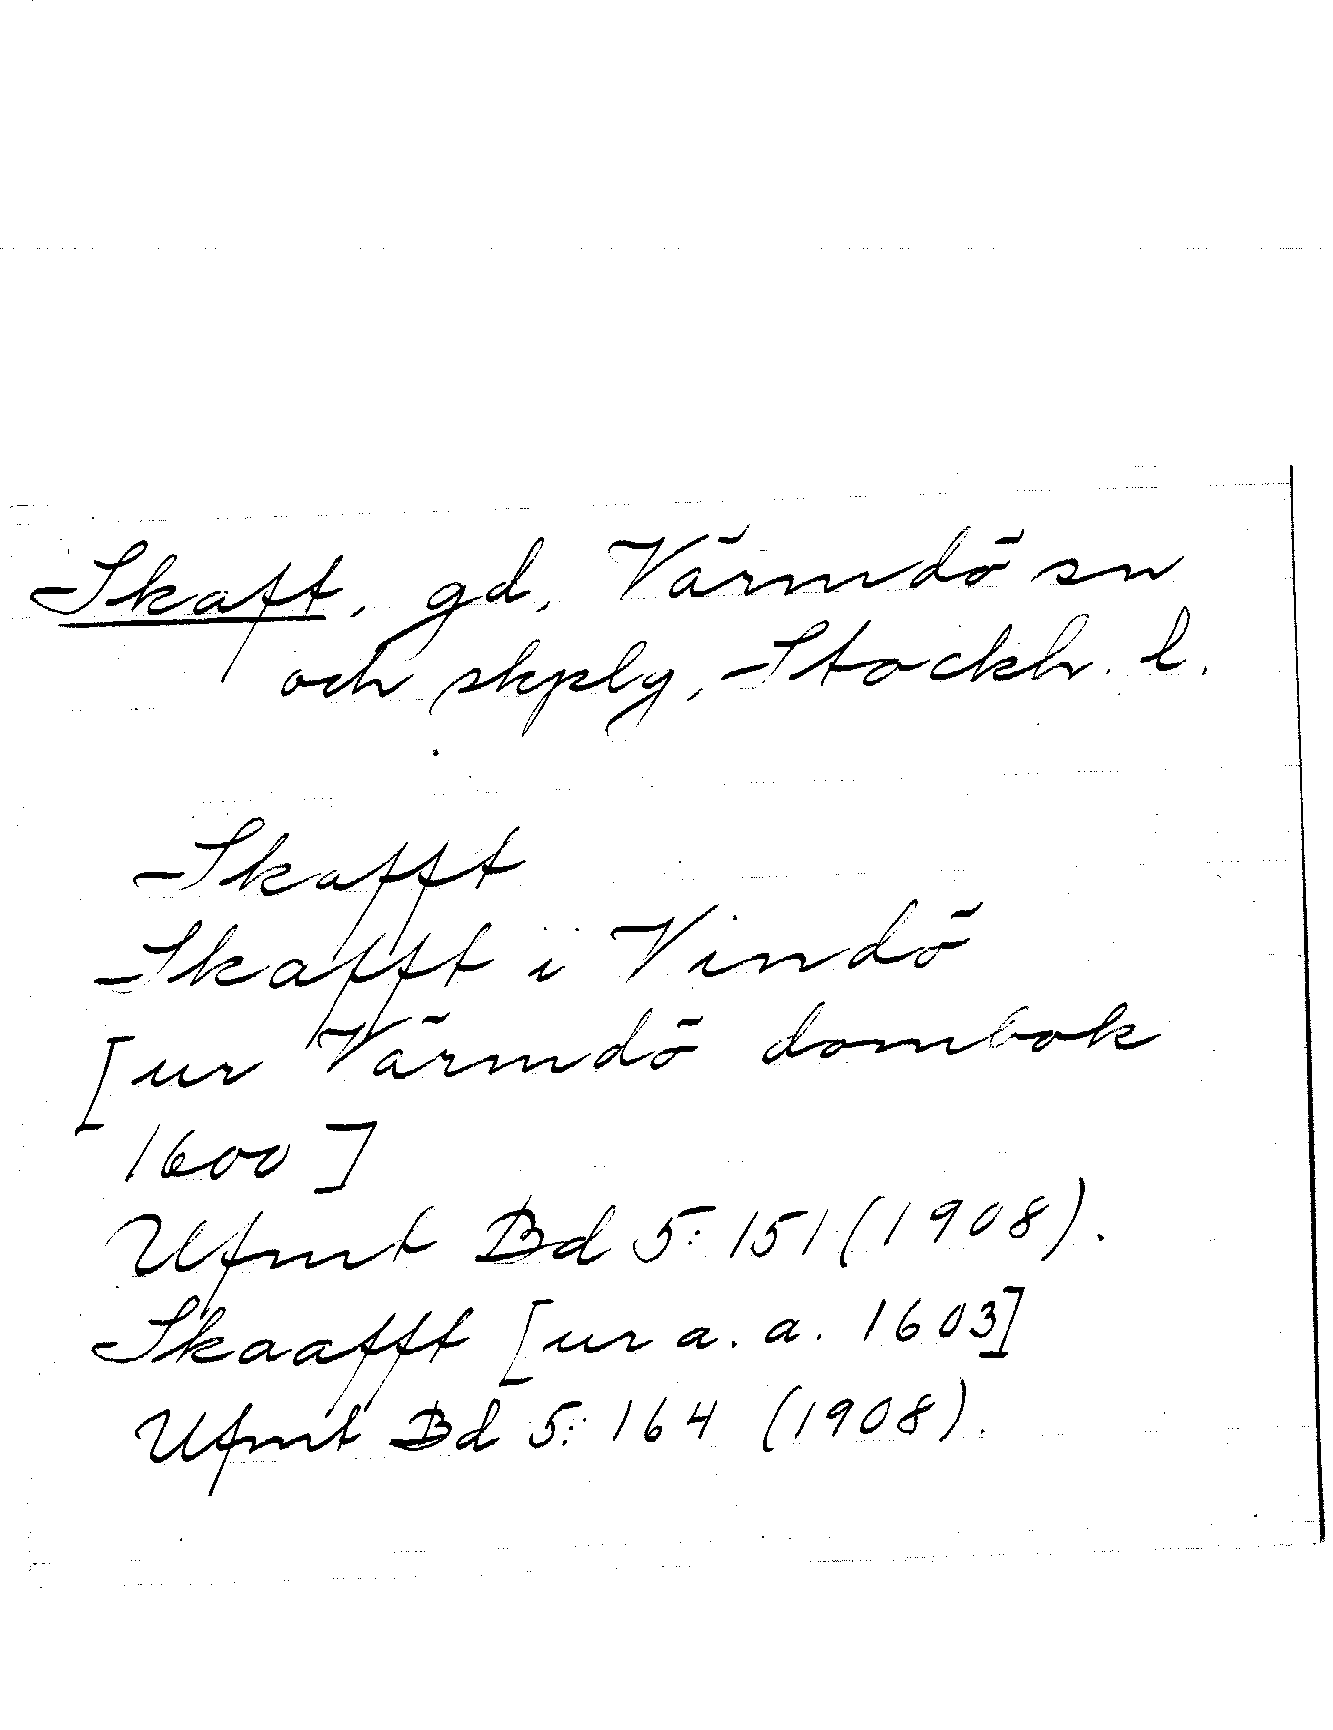 Skaft, gd, Värmdö sn
och skplg, Stockh. l.
Skafft
Skafft i Vindö
[ur Värmdö dombok
1600]
Ufmt Bd 5: 151 (1908).
Skaafft [ur a. a. 1603]
Ufmt Bd 5: 164 (1908).